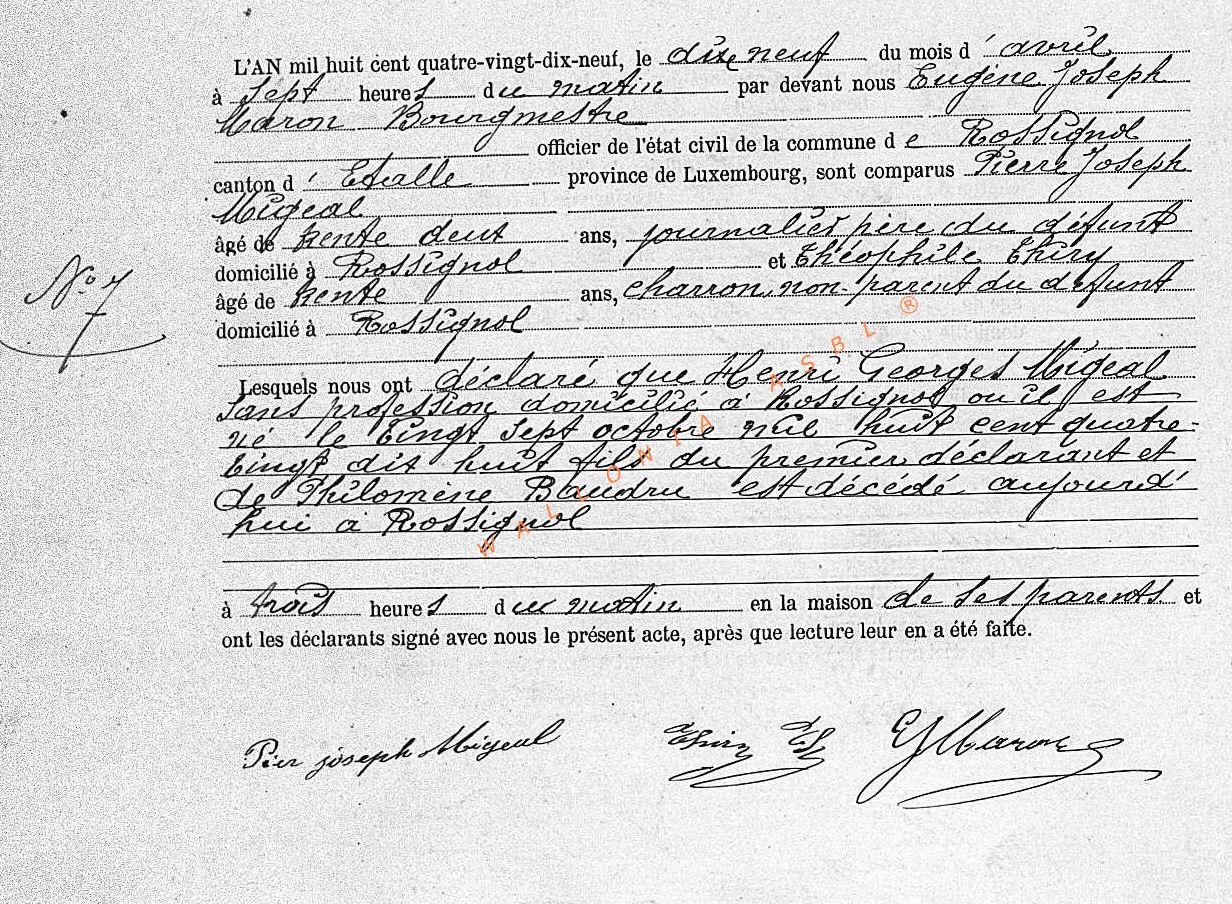 L'AN mil huit cent quatre-vingt-dix-neuf, le dix neuf du mois d' avril
à Sept heures du matin par devant nous Eugène Joseph
Maron Bourgmestre
officier de l'état civil de la commune de Rossignol
canton d' Etalle province de Luxembourg, sont comparus Pierre Joseph
Migeal
âgé de trente deux ans, journalier père du défunt
domicilié à Rossignol et Théophile Thiry
âgé de trente ans, charron, non-parent du défunt
domicilié à Rossignol
No 7
7
Lesquels nous ont déclaré que Henri Georges Migeal
sans profession domicilié à Rossignol ou il est
né le Vingt Sept octobre mil huit cent quatre-
Vingt dix huit fils du premier déclarant et
de Philomène Baudru est décédé aujourd'
hui à Rossignol
WALLONIA ASBL ®
à trois heures du matin en la maison de ses parents et
ont les déclarants signé avec nous le présent acte, après que lecture leur en a été faite.
Pier joseph Migeal Thiry Th EJMaron